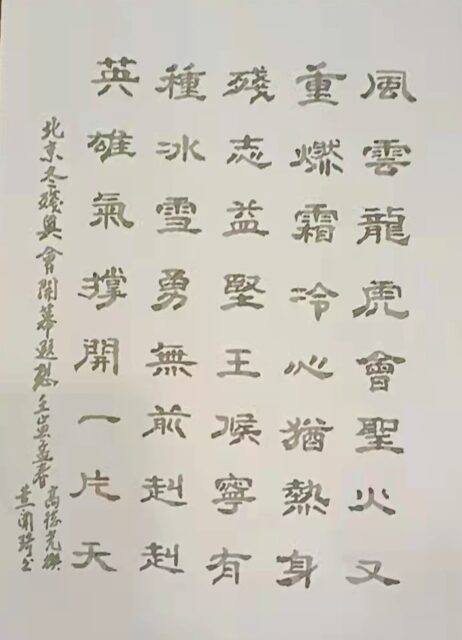 風雲龍虎會聖火又
重燃霜冷心猶熱身
殘志益堅王候寧有
種冰雪勇無前赳赳
英雄氣撐開一片天
北京冬殘奧會開幕遐想壬寅孟春
高德光撰